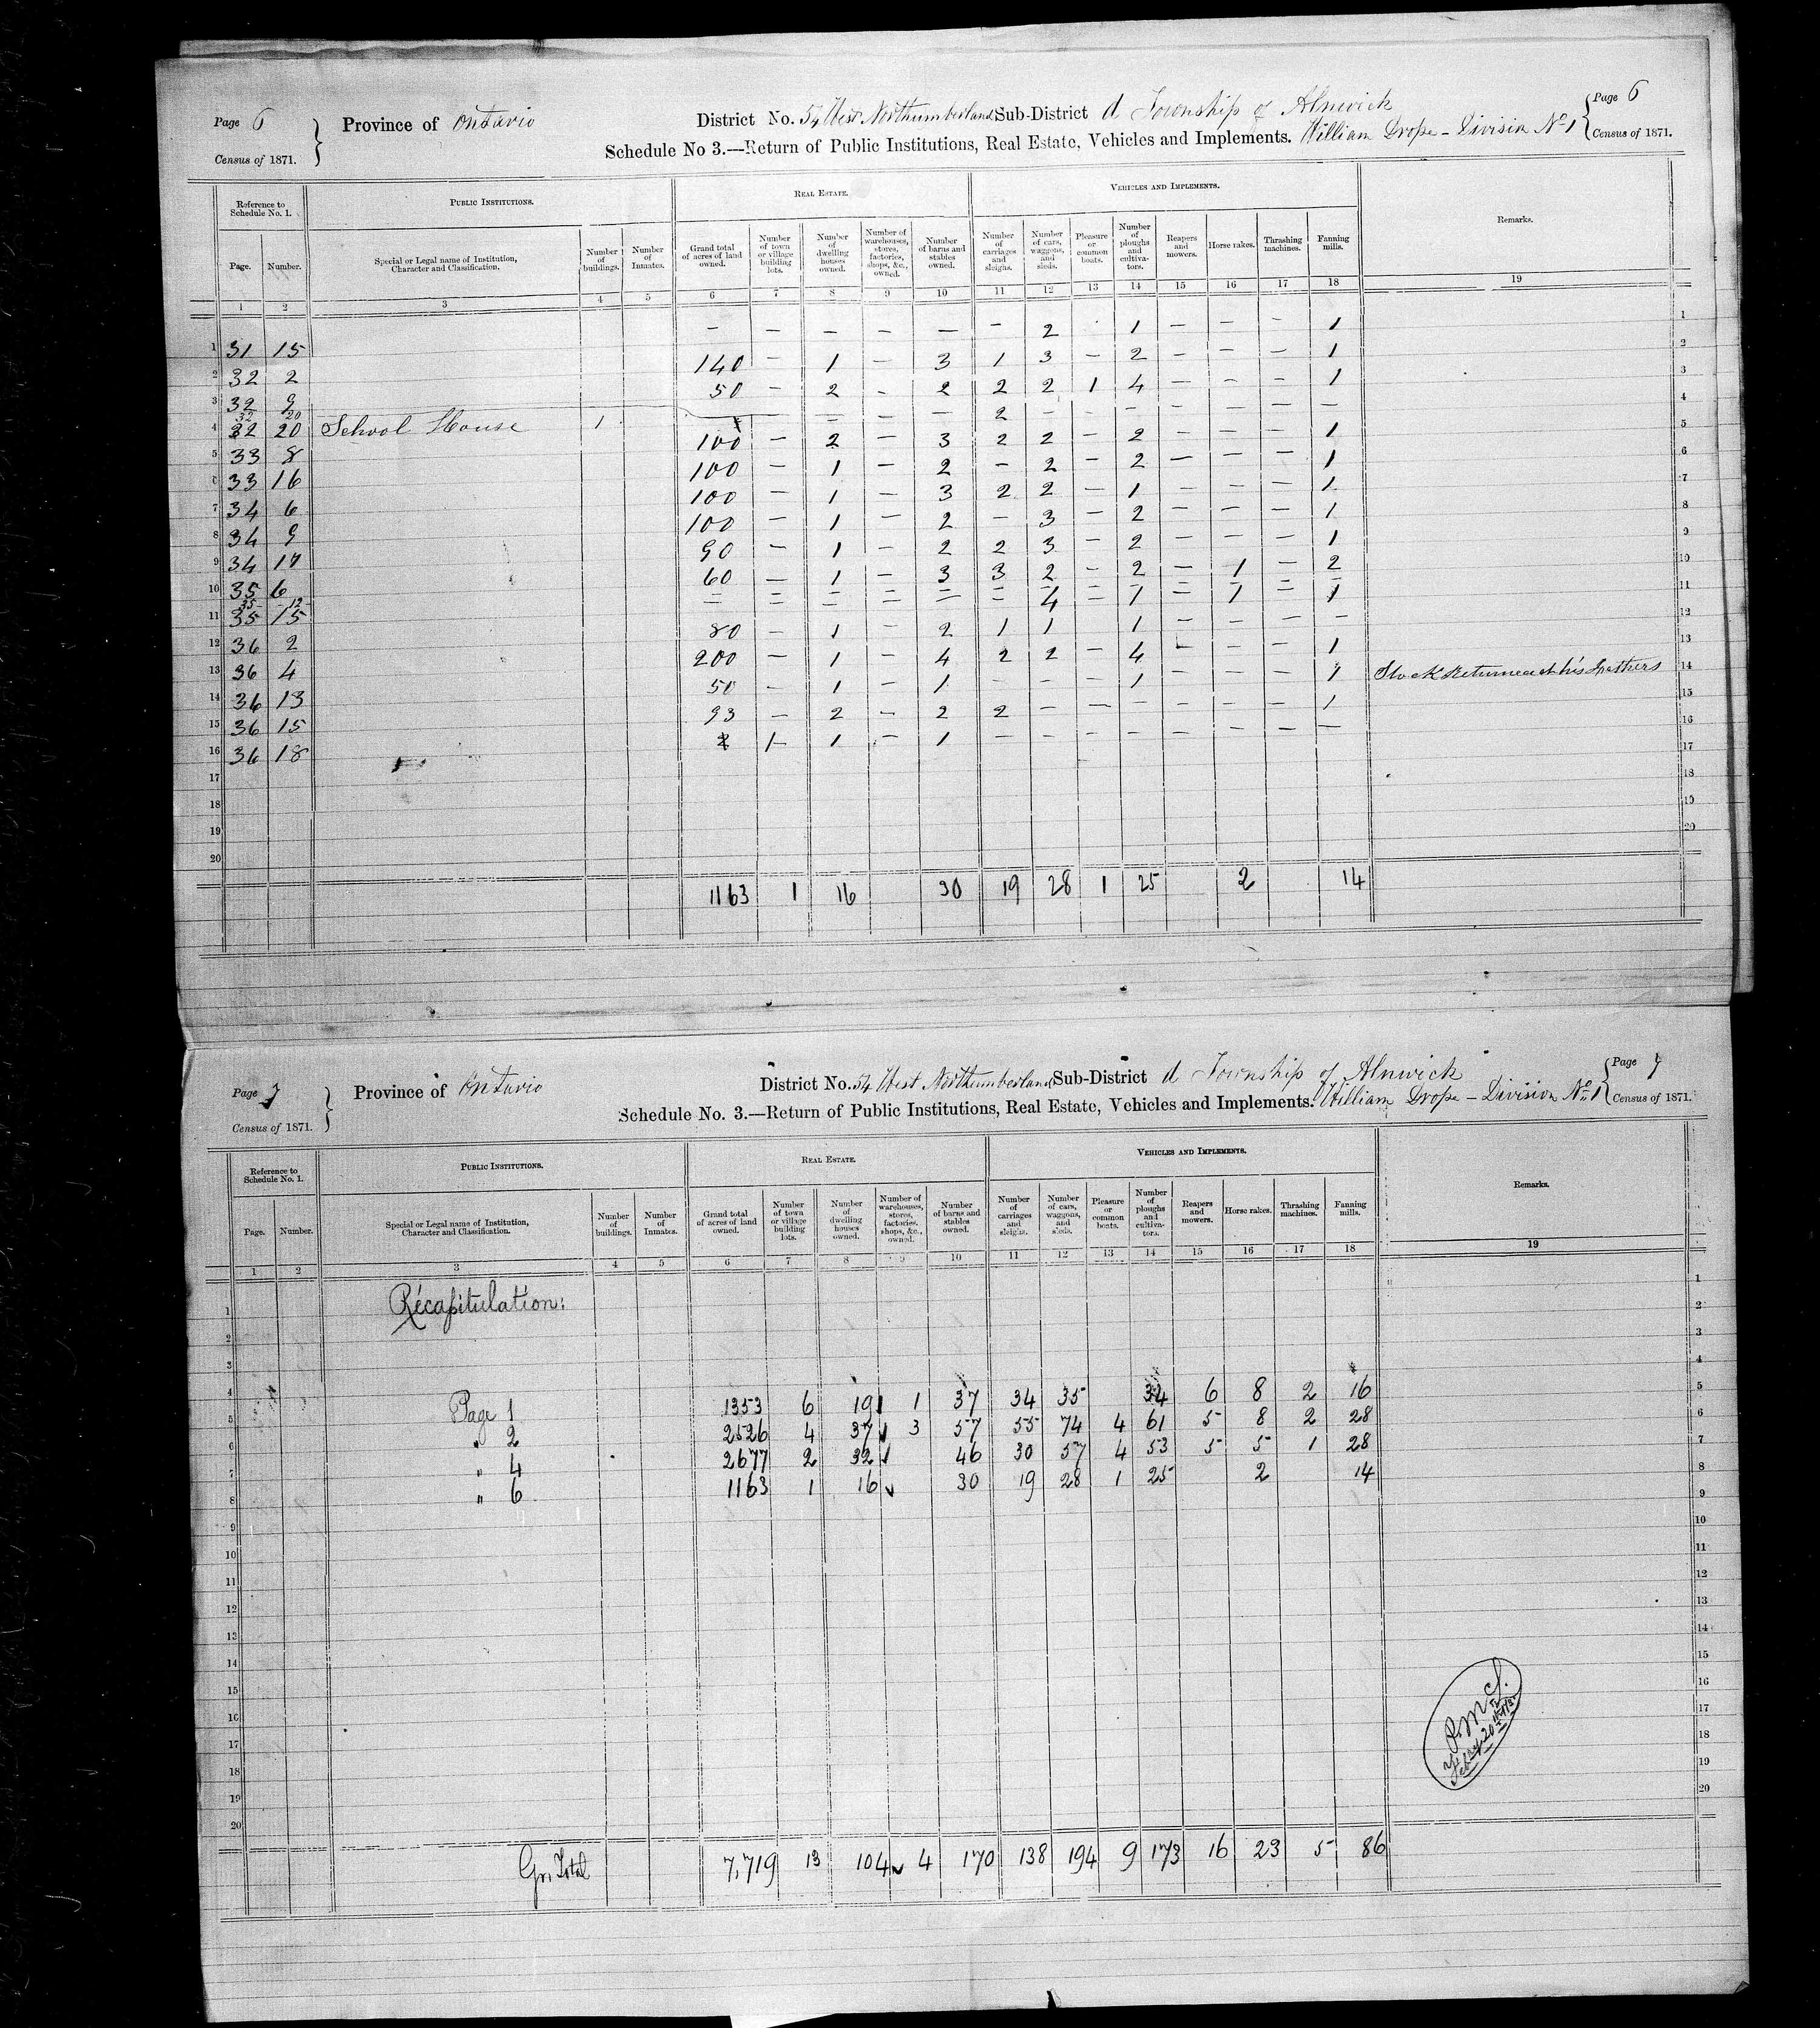 Page 6
Census of 1871.
Province of Ontario
District No. 54 West Northumberland Sub-District d Township of Alnwick
Schedule No 3.—Return of Public Institutions, Real Estate, Vehicles and Implements. William Drope – Division No 1
Page 6
Census of 1871.
Reference to Schedule No. 1.
PUBLIC INSTITUTIONS.
REAL ESTATE.
VEHICLES AND IMPLEMENTS.
Remarks.
Page.
Number.
Special or Legal name of Institution, Character and Classification.
Number of buildings.
Number of Inmates.
Grand total of acres of land owned.
Number of town or village building lots.
Number of dwelling houses owned.
Number of warehouses, stores, factories, shops, &c., owned.
Number of barns and stables owned.
Number of carriages and sleighs.
Number of cars, waggons, and sleds.
Pleasure or common boats.
Number of ploughs and cultivators.
Reapers and mowers.
Horse rakes.
Thrashing machines.
Fanning mills.
1 2 3 4 5 6 7 8 9 10 11 12 13 14 15 16 17 18 19
1 31 15 – – – – – – 2 1 – – – 1 1
2 32 2 140 – 1 – 3 1 3 – 2 – – – 1 2
3 32 9 50 – 2 – 2 2 2 1 4 – – – 1 3
32 20 – – – 2 – – – – – – –
4 32 20 School House 1 4
5 33 8 100 – 2 – 3 2 2 – 2 – – – 1 5
6 33 16 100 – 1 – 2 – 2 – 2 – – – 1 6
7 34 6 100 – 1 – 3 2 2 – 1 – – – 1 7
8 34 9 100 – 1 – 2 – 3 – 2 – – – 1 8
9 34 17 90 – 1 – 2 2 3 – 2 – – – 1 9
10 35 6 60 – 1 – 3 3 2 – 2 – 1 – 2 10
35 12 – – – – – – – – – – – –
11 35 15 – – – – – – 4 – 1 – 1 – 1 11
12 36 2 80 – 1 – 2 1 1 1 – – – – 12
13 36 4 200 – 1 – 4 2 2 – 4 – – – 1 13
14 36 13 50 – 1 – 1 – – – 1 – – – 1 Stock Returned at his Fathers 14
15 36 15 93 – 2 – 2 2 – – – – – – 1 15
16 36 18 1 – 1 – 1 – – – – – – – – 16
17 17
18 18
19 19
20 20
1163 1 16 30 19 28 1 25 2 14
Page 7
Census of 1871.
Province of Ontario
District No. 54 West Northumberland Sub-District d Township of Alnwick
Schedule No. 3.—Return of Public Institutions, Real Estate, Vehicles and Implements. William Drope – Division No 1
Page 7
Census of 1871.
Reference to Schedule No. 1.
PUBLIC INSTITUTIONS.
REAL ESTATE.
VEHICLES AND IMPLEMENTS.
Remarks.
Page.
Number.
Special or Legal name of Institution, Character and Classification.
Number of buildings.
Number of Inmates.
Grand total of acres of land owned.
Number of town or village building lots.
Number of dwelling houses owned.
Number of warehouses, stores, factories, shops, &c., owned.
Number of barns and stables owned.
Number of carriages and sleighs.
Number of cars, waggons, and sleds.
Pleasure or common boats.
Number of ploughs and cultivators.
Reapers and mowers.
Horse rakes.
Thrashing machines.
Fanning mills.
1 2 3 4 5 6 7 8 9 10 11 12 13 14 15 16 17 18 19
1 Récapitulation: 1
2 2
3 3
4 4
5 Page 1 1353 6 19 1 37 34 35 34 6 8 2 16 5
6 " 2 2526 4 37 3 57 55 74 4 61 5 8 2 28 6
7 " 4 2677 2 32 46 30 57 4 53 5 5 1 28 7
8 " 6 1163 1 16 30 19 28 1 25 2 14 8
9 9
10 10
11 11
12 12
13 13
14 14
15 15
16 16
17 17
18 18
19 19
20 20
Gr. Total 7,719 13 104 4 170 138 194 9 173 16 23 5 86